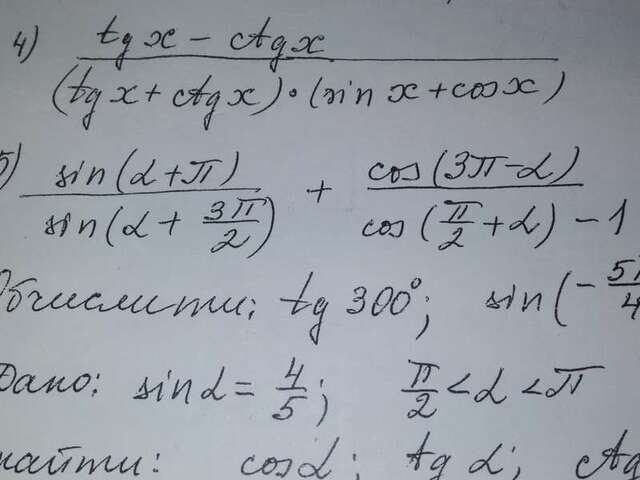 4) (tg x − ctg x) / ((tg x + ctg x) · (sin x + cos x))
5) sin(α + π) / sin(α + 3π/2) + cos(3π − α) / (cos(π/2 + α) − 1)
Обчислити: tg 300°; sin(− 5π/4
Дано: sin α = 4/5; π/2 < α < π
найти: cos α; tg α; ctg